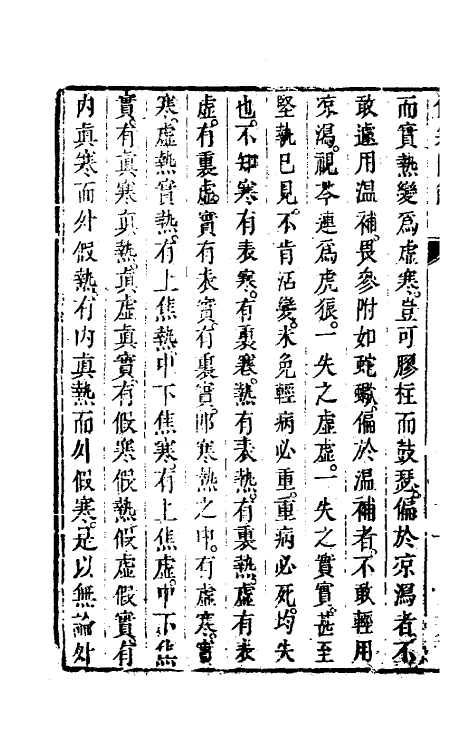 而實熱變爲虛寒。豈可膠柱而鼓瑟。偏於凉瀉者不
敢遽用温補。畏參附如蛇蠍。偏於温補者。不敢輕用
凉瀉。視芩連爲虎狼。一失之虛虛。一失之實實。甚至
堅執已見。不肯活變。未免輕病必重。重病必死。均失
也。不知寒有表寒。有裏寒。熱有表熱。有裏熱。虛有表
虛。有裏虛。實有表實。有裏實。即寒熱之中。有虛寒。實
寒。虛熱實熱。有上焦熱中下焦寒。有上焦虛。中下焦
實。有眞寒眞熱。眞虛眞實。有假寒假熱假虛假實。有
內眞寒而外假熱。有內眞熱而外假寒。是以無論外